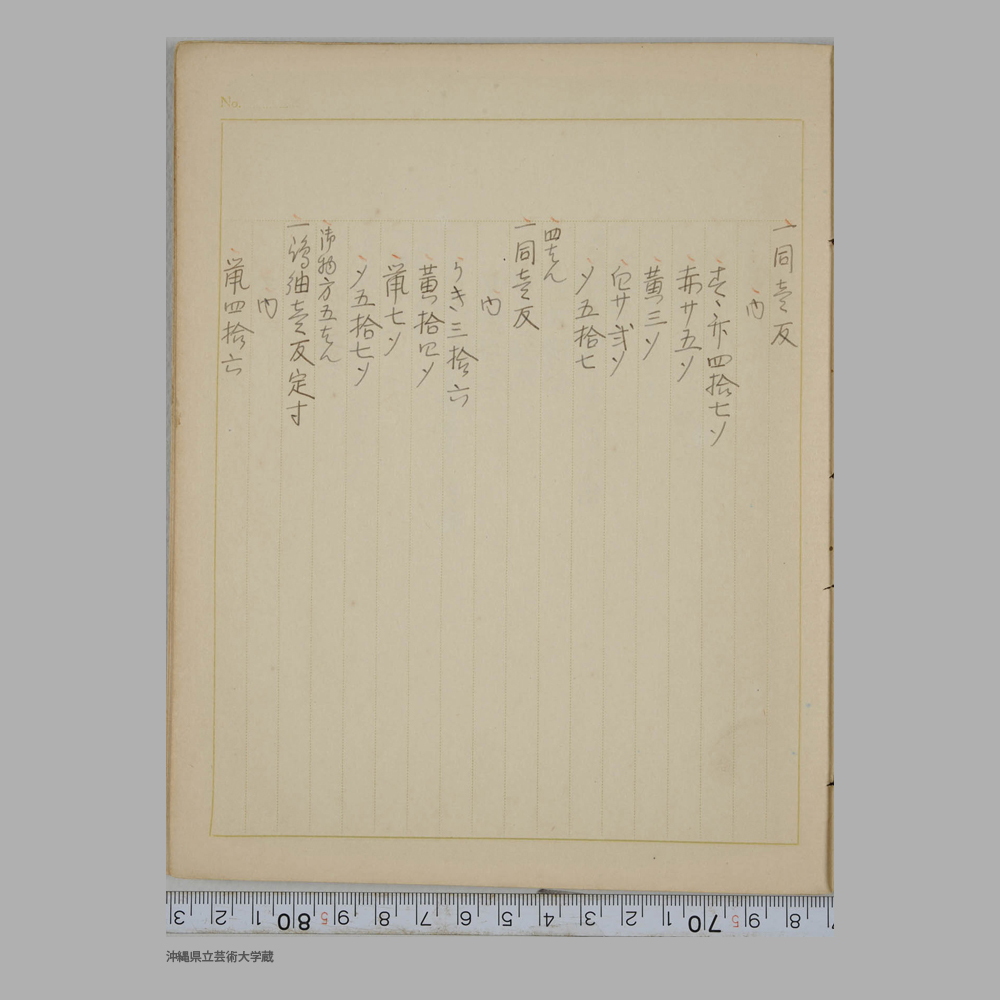 No.
一同壱反
内
赤廿五ソ
黄三ソ
白廿弐ソ
〆五拾七
四もん
一同壱反
内
うき三拾六
黄拾四ソ
鼠七ソ
〆五拾七ソ
御物方五もん
一嶋紬壱反定寸
内
鼠四拾六
3 2 1 80 5 9 8 7 6 5 4 3 2 1 70 5 9 8 7
沖縄県立芸術大学蔵